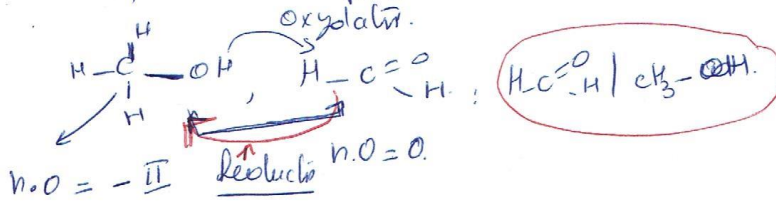 Oxydation.
H
H-C-OH H-C=O H-C=O | CH3-OH.
H , H. : H
n.O = -II Réduction n.O = 0.